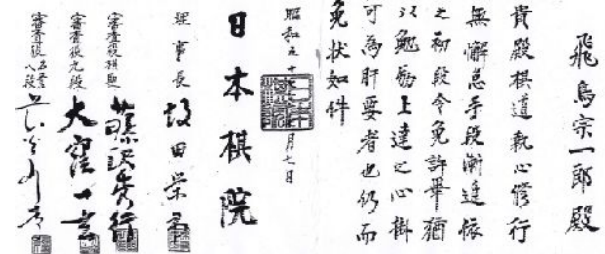 飛鳥宗一郎殿
貴殿棋道執心修行
無懈怠手段漸進依
之初段令免許畢猶
以勉励上達之心掛
可為肝要者也仍而
免状如件
昭和五十 月七日
日本棋院
理事長 坂田栄男
審査役棋聖 藤沢秀行
審査役九段 大窪一玄
審査役名誉八段